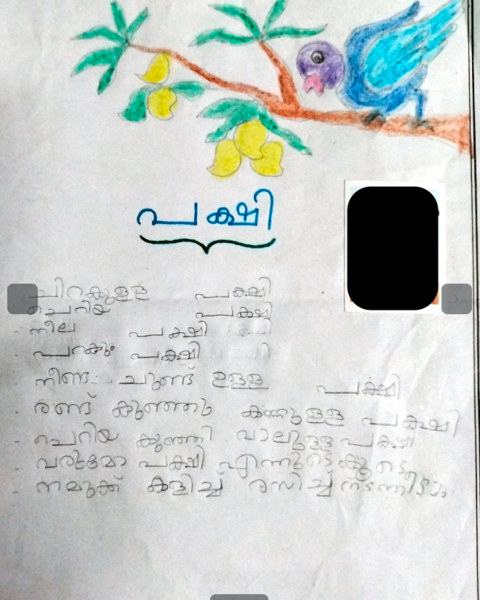 പക്ഷി
ചിറകുള്ള പക്ഷി
ചെറിയ പക്ഷി
നീല പക്ഷി
പറക്കും പക്ഷി
നീണ്ട ചുണ്ട് ഉള്ള പക്ഷി
രണ്ട് കുഞ്ഞു കണ്ണുള്ള പക്ഷി
ചെറിയ കുഞ്ഞി വാലുള്ള പക്ഷി
വരുമോ പക്ഷി എന്നുടെ കൂടെ
നമുക്ക് കളിച്ച് രസിച്ച് നടന്നീടാം